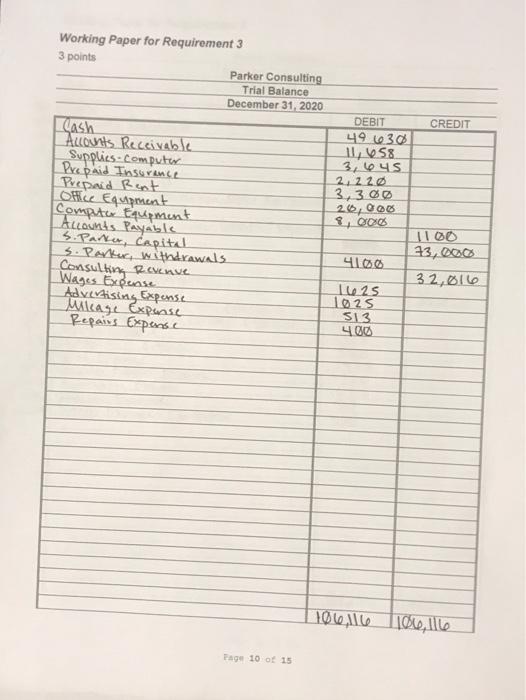 Working Paper for Requirement 3
3 points
Parker Consulting
Trial Balance
December 31, 2020
DEBIT CREDIT
Cash 49 630
Accounts Receivable 11,658
Supplies-computer 3,645
Prepaid Insurance 2,220
Prepaid Rent 3,300
Office Equpment 20,000
Computer Equpment 8,000
Accounts Payable 1100
S. Parker, Capital 73,000
S. Parker, withdrawals 4100
Consulting Revenue 32,016
Wages Expense 1625
Advertising Expense 1025
Mileage Expense 513
Repairs Expense 400
106,116 106,116
Page 10 of 15